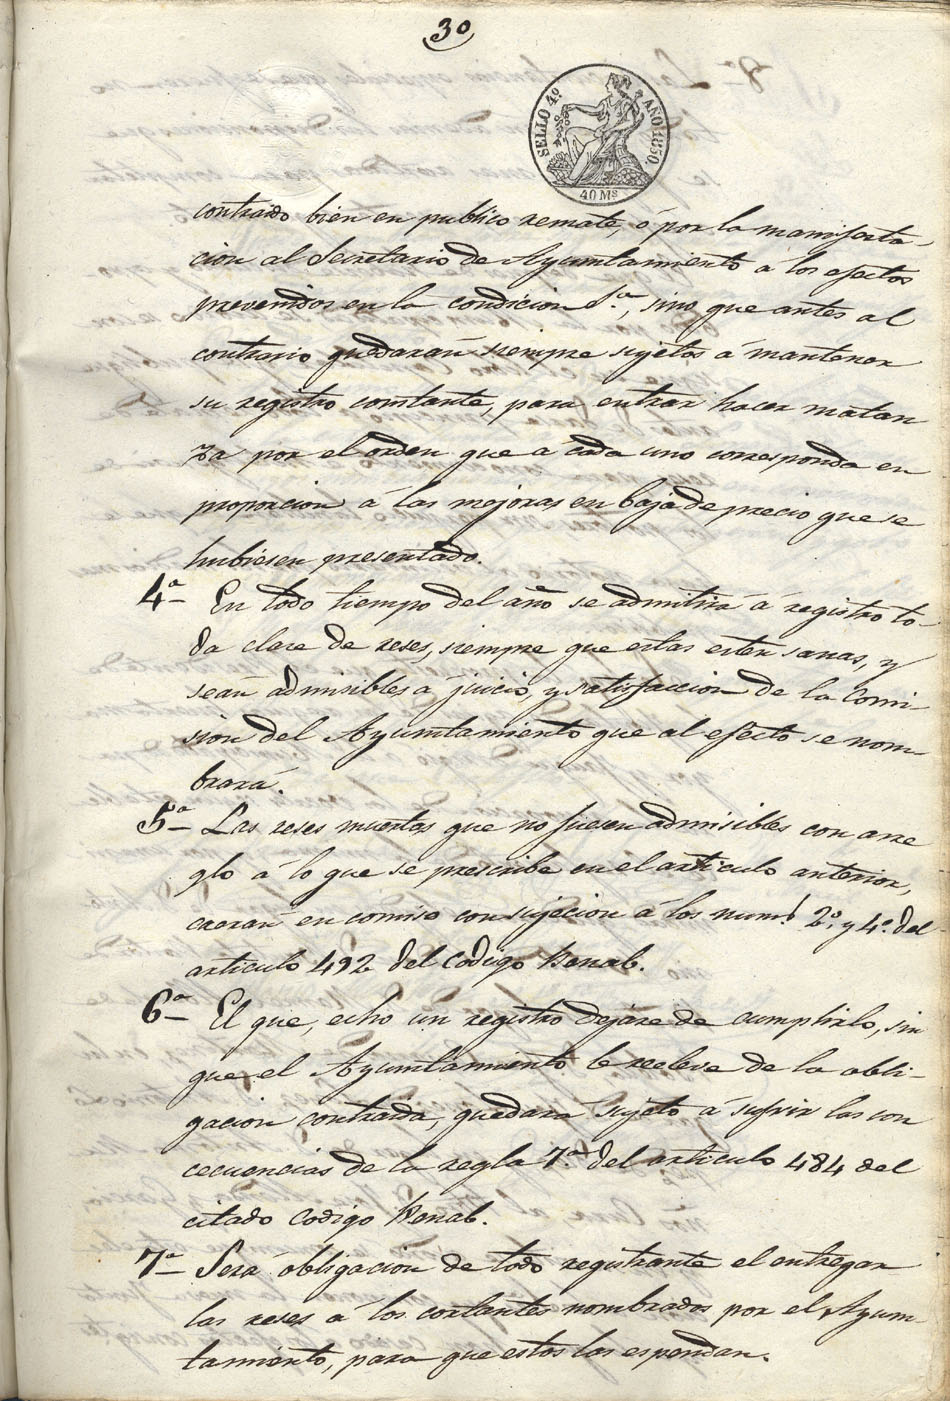 30
SELLO 4º AÑO 1850.
40 Ms
contraido bien en publico remate, ó por la manifesta-
cion al Secretario de Ayuntamiento á los efectos
prevenidos en la condicion 1.ª, sino que antes al
contrario quedarán siempre sujetos á mantener
su registro constante, para entrar hacer matan
za por el orden que a cada uno corresponda en
proporcion á las mejoras en baja de precio que se
hubiesen presentado.
4ª En todo tiempo del año se admitirá á registro to-
da clase de reses, siempre que estas esten sanas, y
sean admisibles á juicio, y satisfaccion de la Comi-
sion del Ayuntamiento que al efecto se nom-
brará.
5ª Las reses muertas que no fuesen admisibles con arre
glo á lo que se prescribe en el articulo anterior,
caeran en comiso con sujecion á los num.s 2º. y 4º. del
articulo 492 del Codigo Penal.
6ª El que, echo un registro dejare de cumplirlo, sin
que el Ayuntamiento le releve de la obli-
gacion contraida, quedará sujeto á sufrir las con
cecuencias de la regla 7.ª del articulo 484 del
citado Codigo Penal.
7ª Será obligacion de todo registrante el entregar
las reses á los cortantes nombrados por el Ayun-
tamiento, para que estos las espendan.